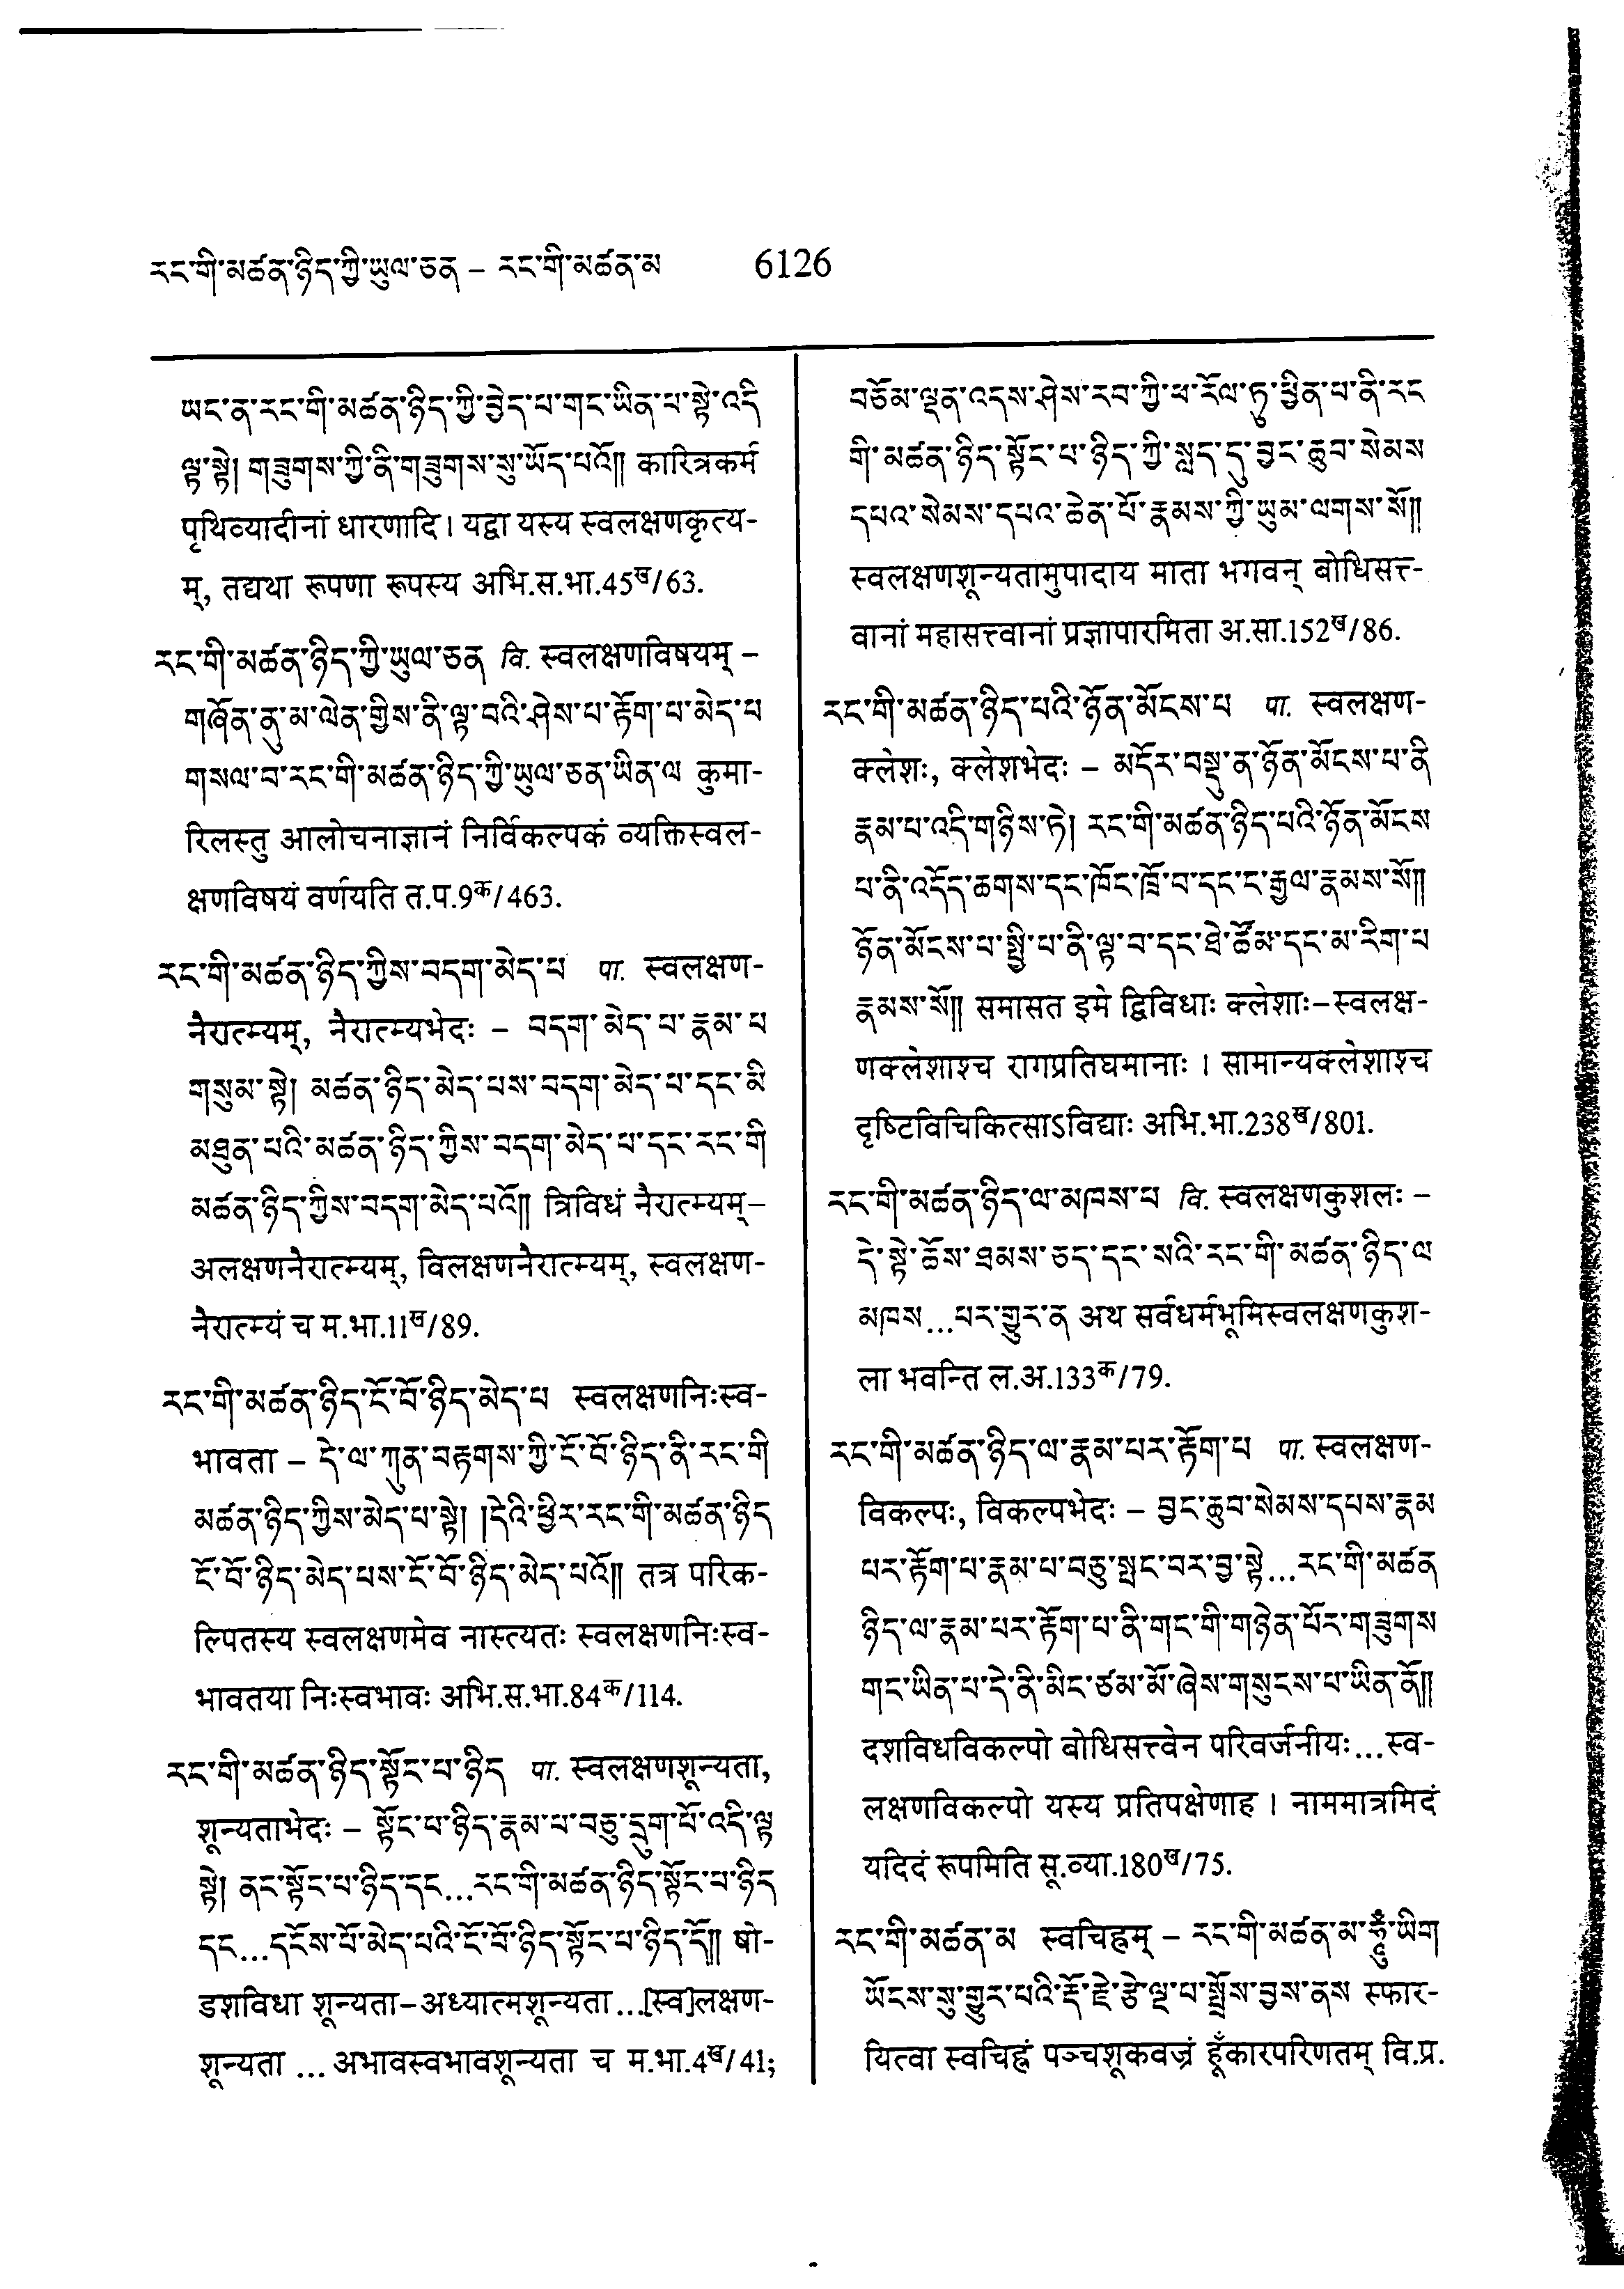 རང་གི་མཚན་ཉིད་ཀྱི་ཡུལ་ཅན – རང་གི་མཚན་མ 6126
ཡང་ན་རང་གི་མཚན་ཉིད་ཀྱི་བྱེད་པ་གང་ཡིན་པ་སྟེ་འདི
ལྟ་སྟེ། གཟུགས་ཀྱི་ནི་གཟུགས་སུ་ཡོད་པའོ།། कारित्रकर्म
पृथिव्यादीनां धारणादि । यद्वा यस्य स्वलक्षणकृत्य-
म्, तद्यथा रूपणा रूपस्य अभि.स.भा.45ख/63.
རང་གི་མཚན་ཉིད་ཀྱི་ཡུལ་ཅན वि. स्वलक्षणविषयम् –
གཞོན་ནུ་མ་ལེན་གྱིས་ནི་ལྟ་བའི་ཤེས་པ་རྟོག་པ་མེད་པ
གསལ་བ་རང་གི་མཚན་ཉིད་ཀྱི་ཡུལ་ཅན་ཡིན་ལ कुमा-
रिलस्तु आलोचनाज्ञानं निर्विकल्पकं व्यक्तिस्वल-
क्षणविषयं वर्णयति त.प.9क/463.
རང་གི་མཚན་ཉིད་ཀྱིས་བདག་མེད་པ पा. स्वलक्षण-
नैरात्म्यम्, नैरात्म्यभेदः – བདག་མེད་པ་རྣམ་པ
གསུམ་སྟེ། མཚན་ཉིད་མེད་པས་བདག་མེད་པ་དང་མི
མཐུན་པའི་མཚན་ཉིད་ཀྱིས་བདག་མེད་པ་དང་རང་གི
མཚན་ཉིད་ཀྱིས་བདག་མེད་པའོ།། त्रिविधं नैरात्म्यम्–
अलक्षणनैरात्म्यम्, विलक्षणनैरात्म्यम्, स्वलक्षण-
नैरात्म्यं च म.भा.11ख/89.
རང་གི་མཚན་ཉིད་ངོ་བོ་ཉིད་མེད་པ स्वलक्षणनिःस्व-
भावता – དེ་ལ་ཀུན་བརྟགས་ཀྱི་ངོ་བོ་ཉིད་ནི་རང་གི
མཚན་ཉིད་ཀྱིས་མེད་པ་སྟེ། །དེའི་ཕྱིར་རང་གི་མཚན་ཉིད
ངོ་བོ་ཉིད་མེད་པས་ངོ་བོ་ཉིད་མེད་པའོ།། तत्र परिक-
ल्पितस्य स्वलक्षणमेव नास्त्यतः स्वलक्षणनिःस्व-
भावतया निःस्वभावः अभि.स.भा.84क/114.
རང་གི་མཚན་ཉིད་སྟོང་པ་ཉིད पा. स्वलक्षणशून्यता,
शून्यताभेदः – སྟོང་པ་ཉིད་རྣམ་པ་བཅུ་དྲུག་པོ་འདི་ལྟ
སྟེ། ནང་སྟོང་པ་ཉིད་དང...རང་གི་མཚན་ཉིད་སྟོང་པ་ཉིད
དང...དངོས་པོ་མེད་པའི་ངོ་བོ་ཉིད་སྟོང་པ་ཉིད་དོ།། षो-
डशविधा शून्यता–अध्यात्मशून्यता...[स्व]लक्षण-
शून्यता ... अभावस्वभावशून्यता च म.भा.4ख/41;
བཅོམ་ལྡན་འདས་ཤེས་རབ་ཀྱི་ཕ་རོལ་ཏུ་ཕྱིན་པ་ནི་རང
གི་མཚན་ཉིད་སྟོང་པ་ཉིད་ཀྱི་སླད་དུ་བྱང་ཆུབ་སེམས
དཔའ་སེམས་དཔའ་ཆེན་པོ་རྣམས་ཀྱི་ཡུམ་ལགས་སོ།།
स्वलक्षणशून्यतामुपादाय माता भगवन् बोधिसत्त-
वानां महासत्त्वानां प्रज्ञापारमिता अ.सा.152ख/86.
རང་གི་མཚན་ཉིད་པའི་ཉོན་མོངས་པ पा. स्वलक्षण-
क्लेशः, क्लेशभेदः – མདོར་བསྡུ་ན་ཉོན་མོངས་པ་ནི
རྣམ་པ་འདི་གཉིས་ཏེ། རང་གི་མཚན་ཉིད་པའི་ཉོན་མོངས
པ་ནི་འདོད་ཆགས་དང་ཁོང་ཁྲོ་བ་དང་ང་རྒྱལ་རྣམས་སོ།།
ཉོན་མོངས་པ་སྤྱི་པ་ནི་ལྟ་བ་དང་ཐེ་ཚོམ་དང་མ་རིག་པ
རྣམས་སོ།། समासत इमे द्विविधाः क्लेशाः–स्वलक्ष-
णक्लेशाश्च रागप्रतिघमानाः । सामान्यक्लेशाश्च
दृष्टिविचिकित्साऽविद्याः अभि.भा.238ख/801.
རང་གི་མཚན་ཉིད་ལ་མཁས་པ वि. स्वलक्षणकुशलः –
དེ་སྟེ་ཆོས་ཐམས་ཅད་དང་སའི་རང་གི་མཚན་ཉིད་ལ
མཁས...པར་གྱུར་ན अथ सर्वधर्मभूमिस्वलक्षणकुश-
ला भवन्ति ल.अ.133क/79.
རང་གི་མཚན་ཉིད་ལ་རྣམ་པར་རྟོག་པ पा. स्वलक्षण-
विकल्पः, विकल्पभेदः – བྱང་ཆུབ་སེམས་དཔས་རྣམ
པར་རྟོག་པ་རྣམ་པ་བཅུ་སྤང་བར་བྱ་སྟེ...རང་གི་མཚན
ཉིད་ལ་རྣམ་པར་རྟོག་པ་ནི་གང་གི་གཉེན་པོར་གཟུགས
གང་ཡིན་པ་དེ་ནི་མིང་ཙམ་མོ་ཞེས་གསུངས་པ་ཡིན་ནོ།།
दशविधविकल्पो बोधिसत्त्वेन परिवर्जनीयः...स्व-
लक्षणविकल्पो यस्य प्रतिपक्षेणाह । नाममात्रमिदं
यदिदं रूपमिति सू.व्या.180ख/75.
རང་གི་མཚན་མ स्वचिह्नम् – རང་གི་མཚན་མ་ཧཱུྃ་ཡིག
ཡོངས་སུ་གྱུར་པའི་རྡོ་རྗེ་རྩེ་ལྔ་པ་སྤྲོས་བྱས་ནས स्फार-
यित्वा स्वचिह्नं पञ्चशूकवज्रं हूँकारपरिणतम् वि.प्र.